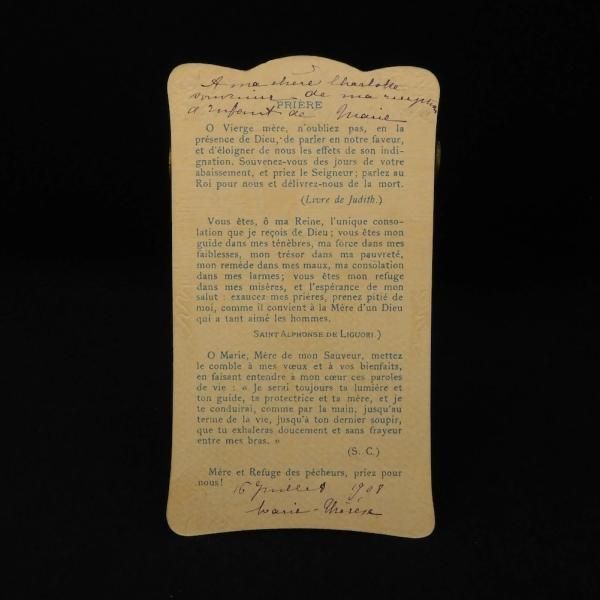 A ma chère Charlotte
souvenir de ma réception
d'Enfant de Marie
PRIÈRE
O Vierge mère, n'oubliez pas, en la
présence de Dieu, de parler en notre faveur,
et d'éloigner de nous les effets de son indi-
gnation. Souvenez-vous des jours de votre
abaissement, et priez le Seigneur; parlez au
Roi pour nous et délivrez-nous de la mort.
(Livre de Judith.)
Vous êtes, ô ma Reine, l'unique conso-
lation que je reçois de Dieu; vous êtes mon
guide dans mes ténèbres, ma force dans mes
faiblesses, mon trésor dans ma pauvreté,
mon remède dans mes maux, ma consolation
dans mes larmes; vous êtes mon refuge
dans mes misères, et l'espérance de mon
salut : exaucez mes prières, prenez pitié de
moi, comme il convient à la Mère d'un Dieu
qui a tant aimé les hommes.
SAINT ALPHONSE DE LIGUORI.)
O Marie, Mère de mon Sauveur, mettez
le comble à mes vœux et à vos bienfaits,
en faisant entendre à mon cœur ces paroles
de vie : « Je serai toujours ta lumière et
ton guide, ta protectrice et ta mère, et je
te conduirai, comme par la main, jusqu'au
terme de la vie, jusqu'à ton dernier soupir,
que tu exhaleras doucement et sans frayeur
entre mes bras. »
(S. C.)
Mère et Refuge des pécheurs, priez pour
nous!
16 Juillet 1908
Marie-Thérèse